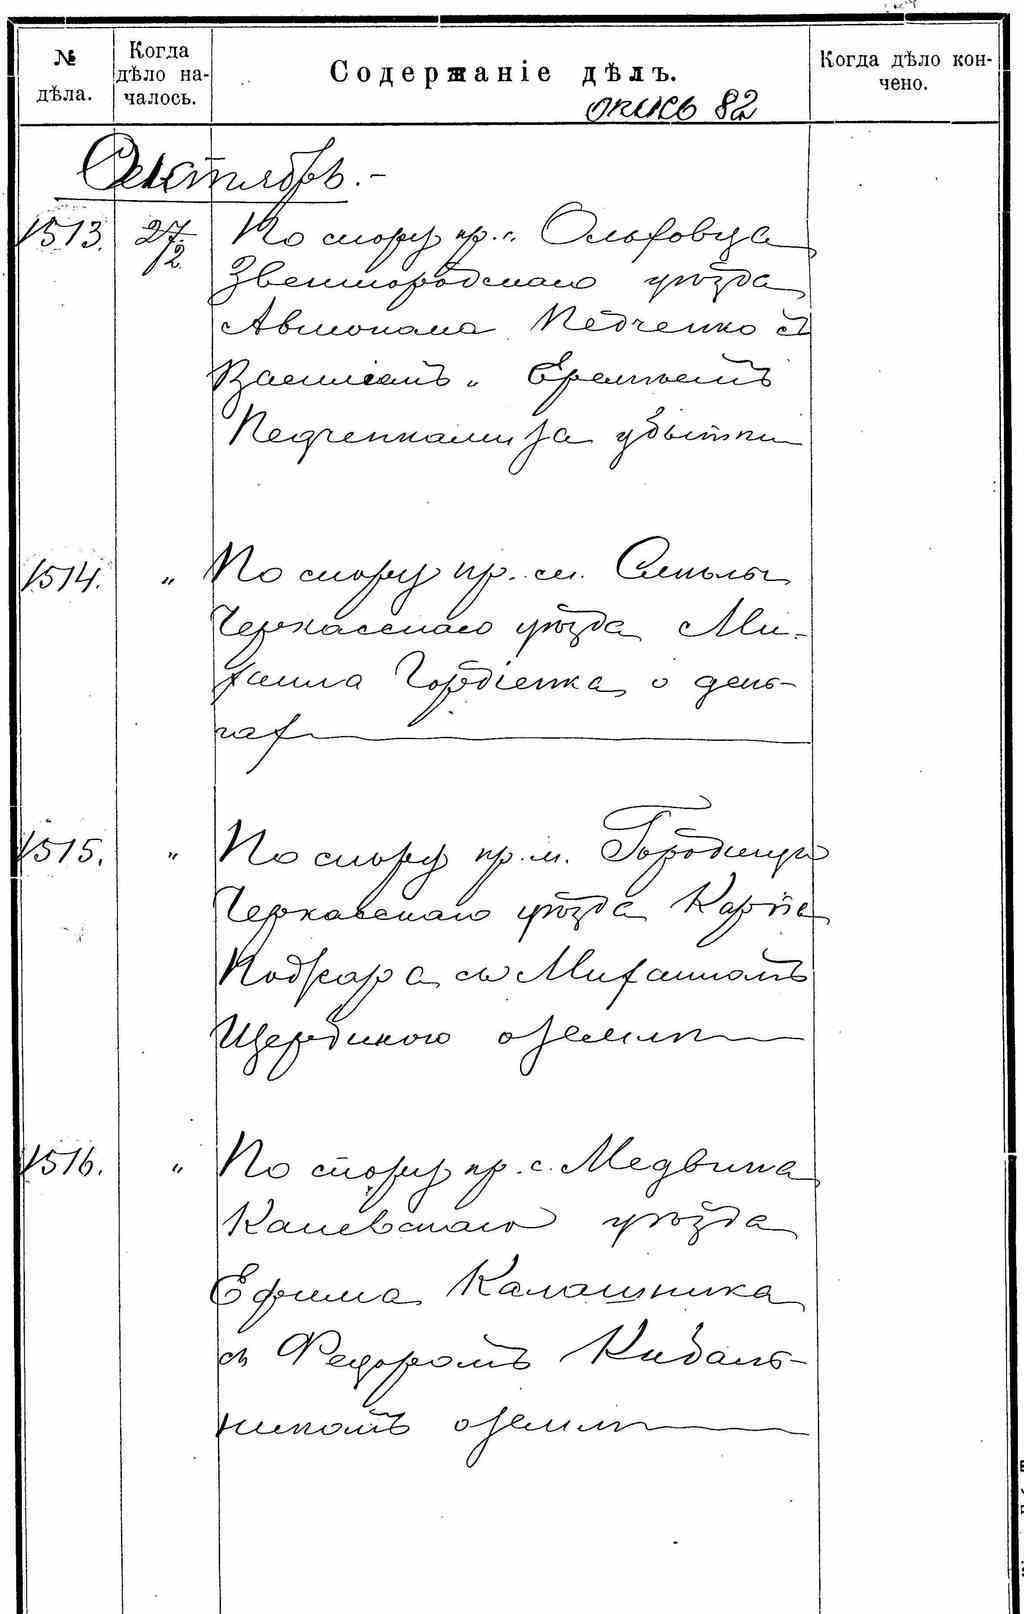 № дѣла.
Когда дѣло началось.
Содержаніе дѣлъ.
Когда дѣло кончено.
опись 82
Октябрь.-
1513. 27/2 По спору кр. с. Ольховца
Звенигородскаго уѣзда
Автонома Педченко съ
Василіемъ и Еремѣемъ
Педченками за убытки
1514. „ По спору кр. м. Смѣлы
Черкасскаго уѣзда Ми-
хаила Гордіенка о день-
гахъ
1515. „ По спору кр. м. Городища
Черкасскаго уѣзда Карпа
съ Михаиломъ
о землѣ
1516. „ По спору кр. с. Медвина
Каневскаго уѣзда
Ефима Калашника
съ Федоромъ Кибаль-
никомъ о землѣ